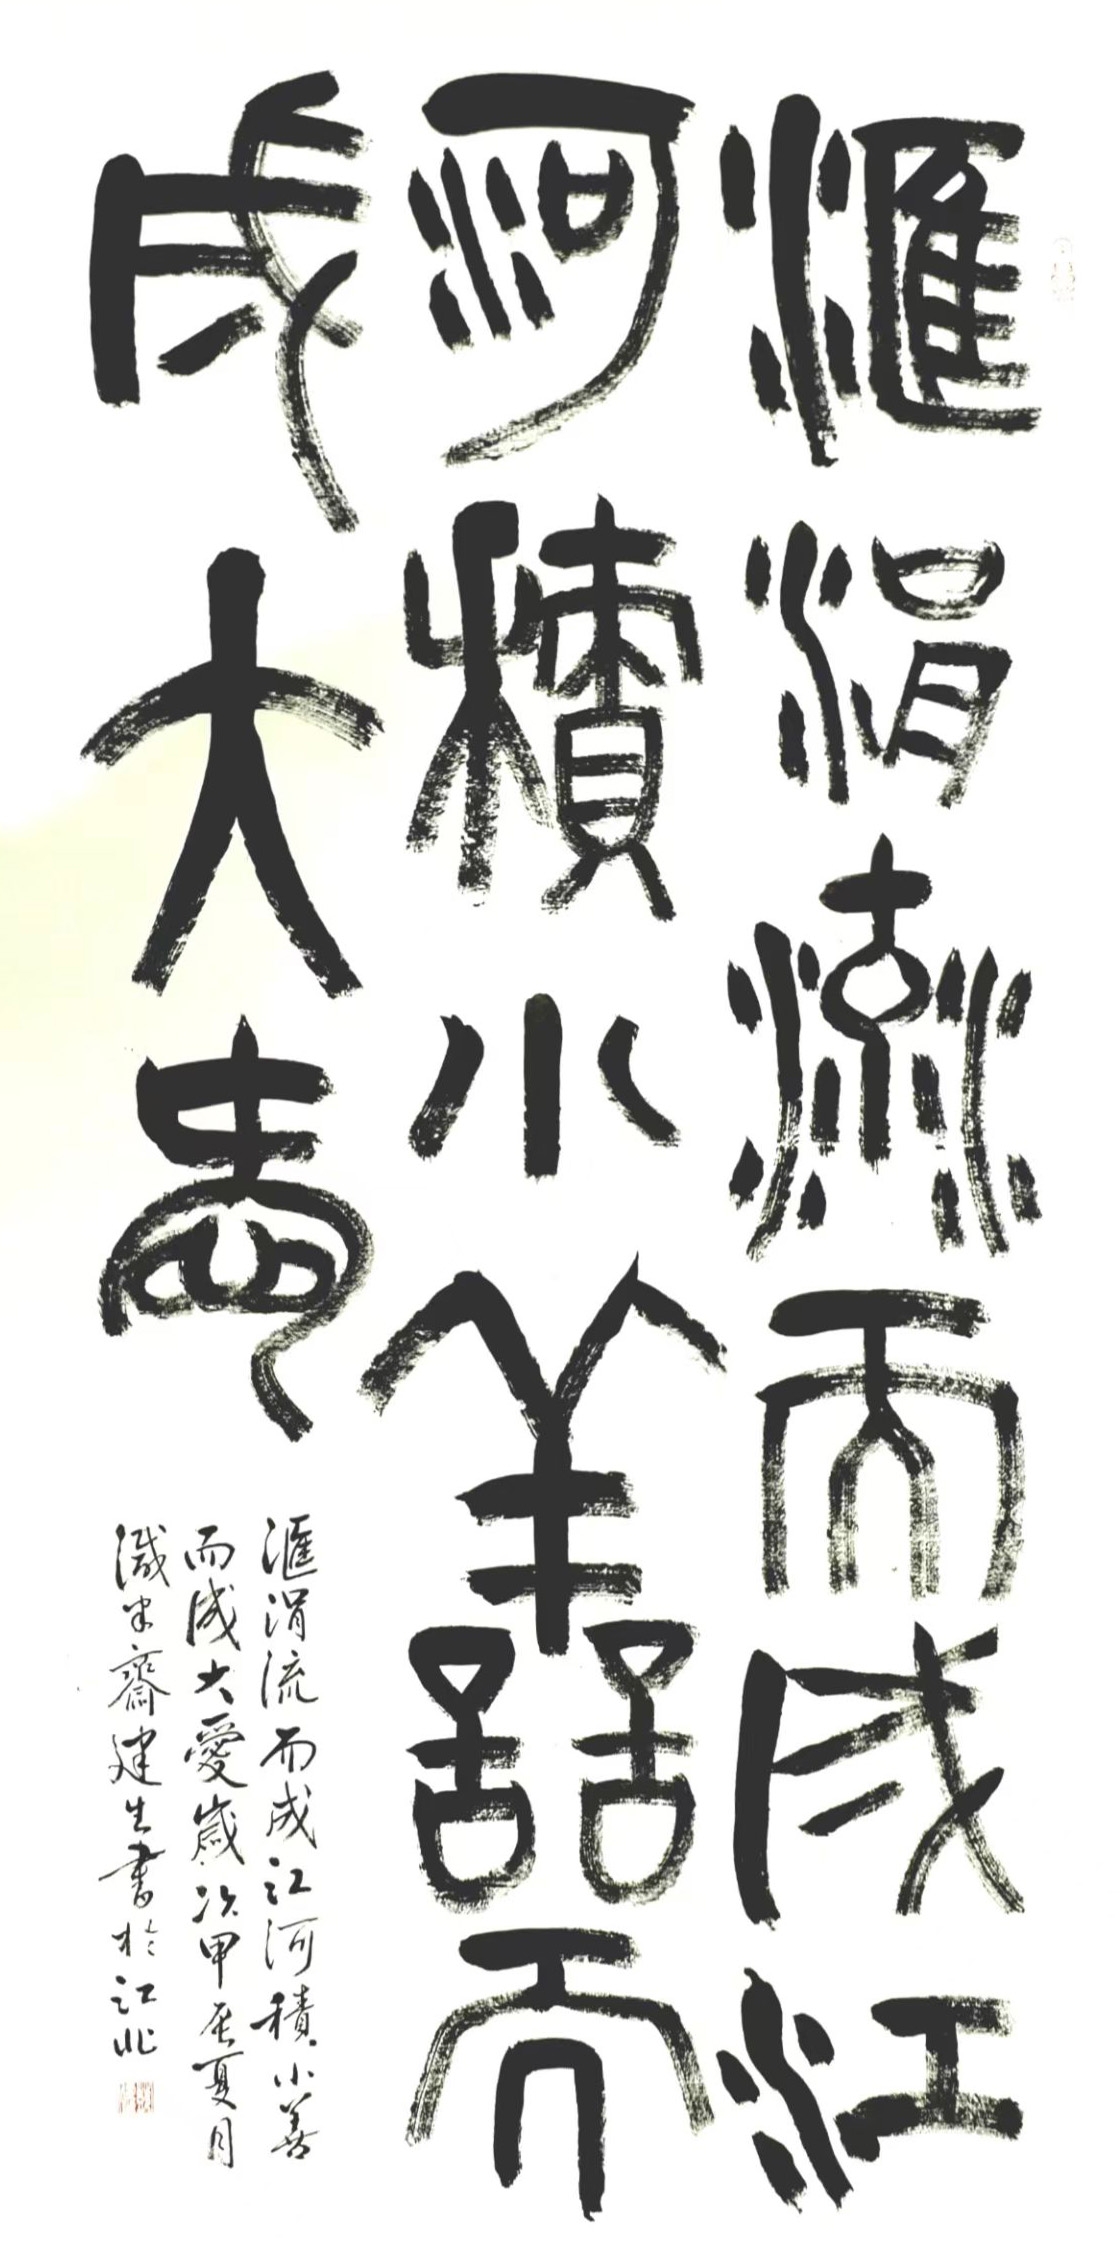 滙涓流而成江
河積小善而
成大愛
滙涓流而成江河積小善
而成大愛歲次甲辰夏月
識半齋建生書於江北